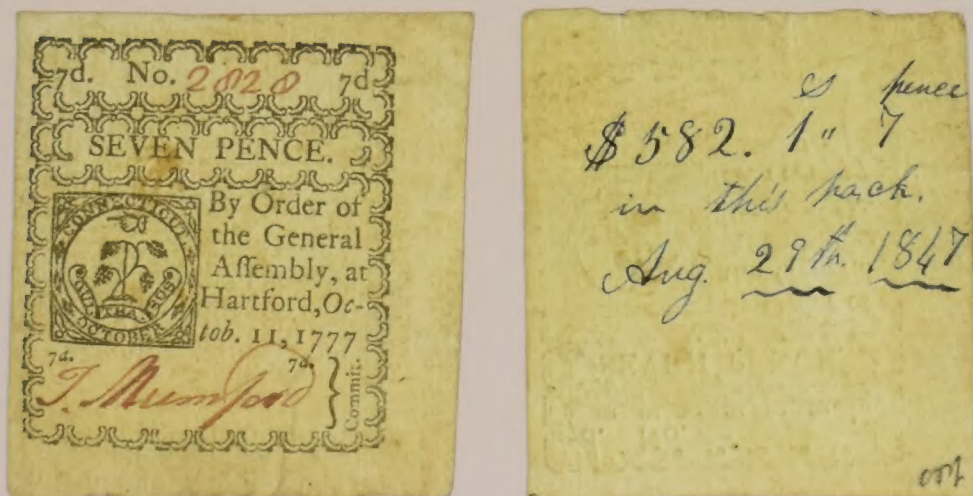 7d. No. 2828 7d.
SEVEN PENCE.
CONNECTICUT
QUI TRA. SUST
OCTOBER
By Order of
the General
Aſſembly, at
Hartford, Oc-
tob. 11, 1777
7d. 7d.
T. Mumford
Commit.
s pence
$582. 1 " 7
in this pack.
Aug. 29th. 1847